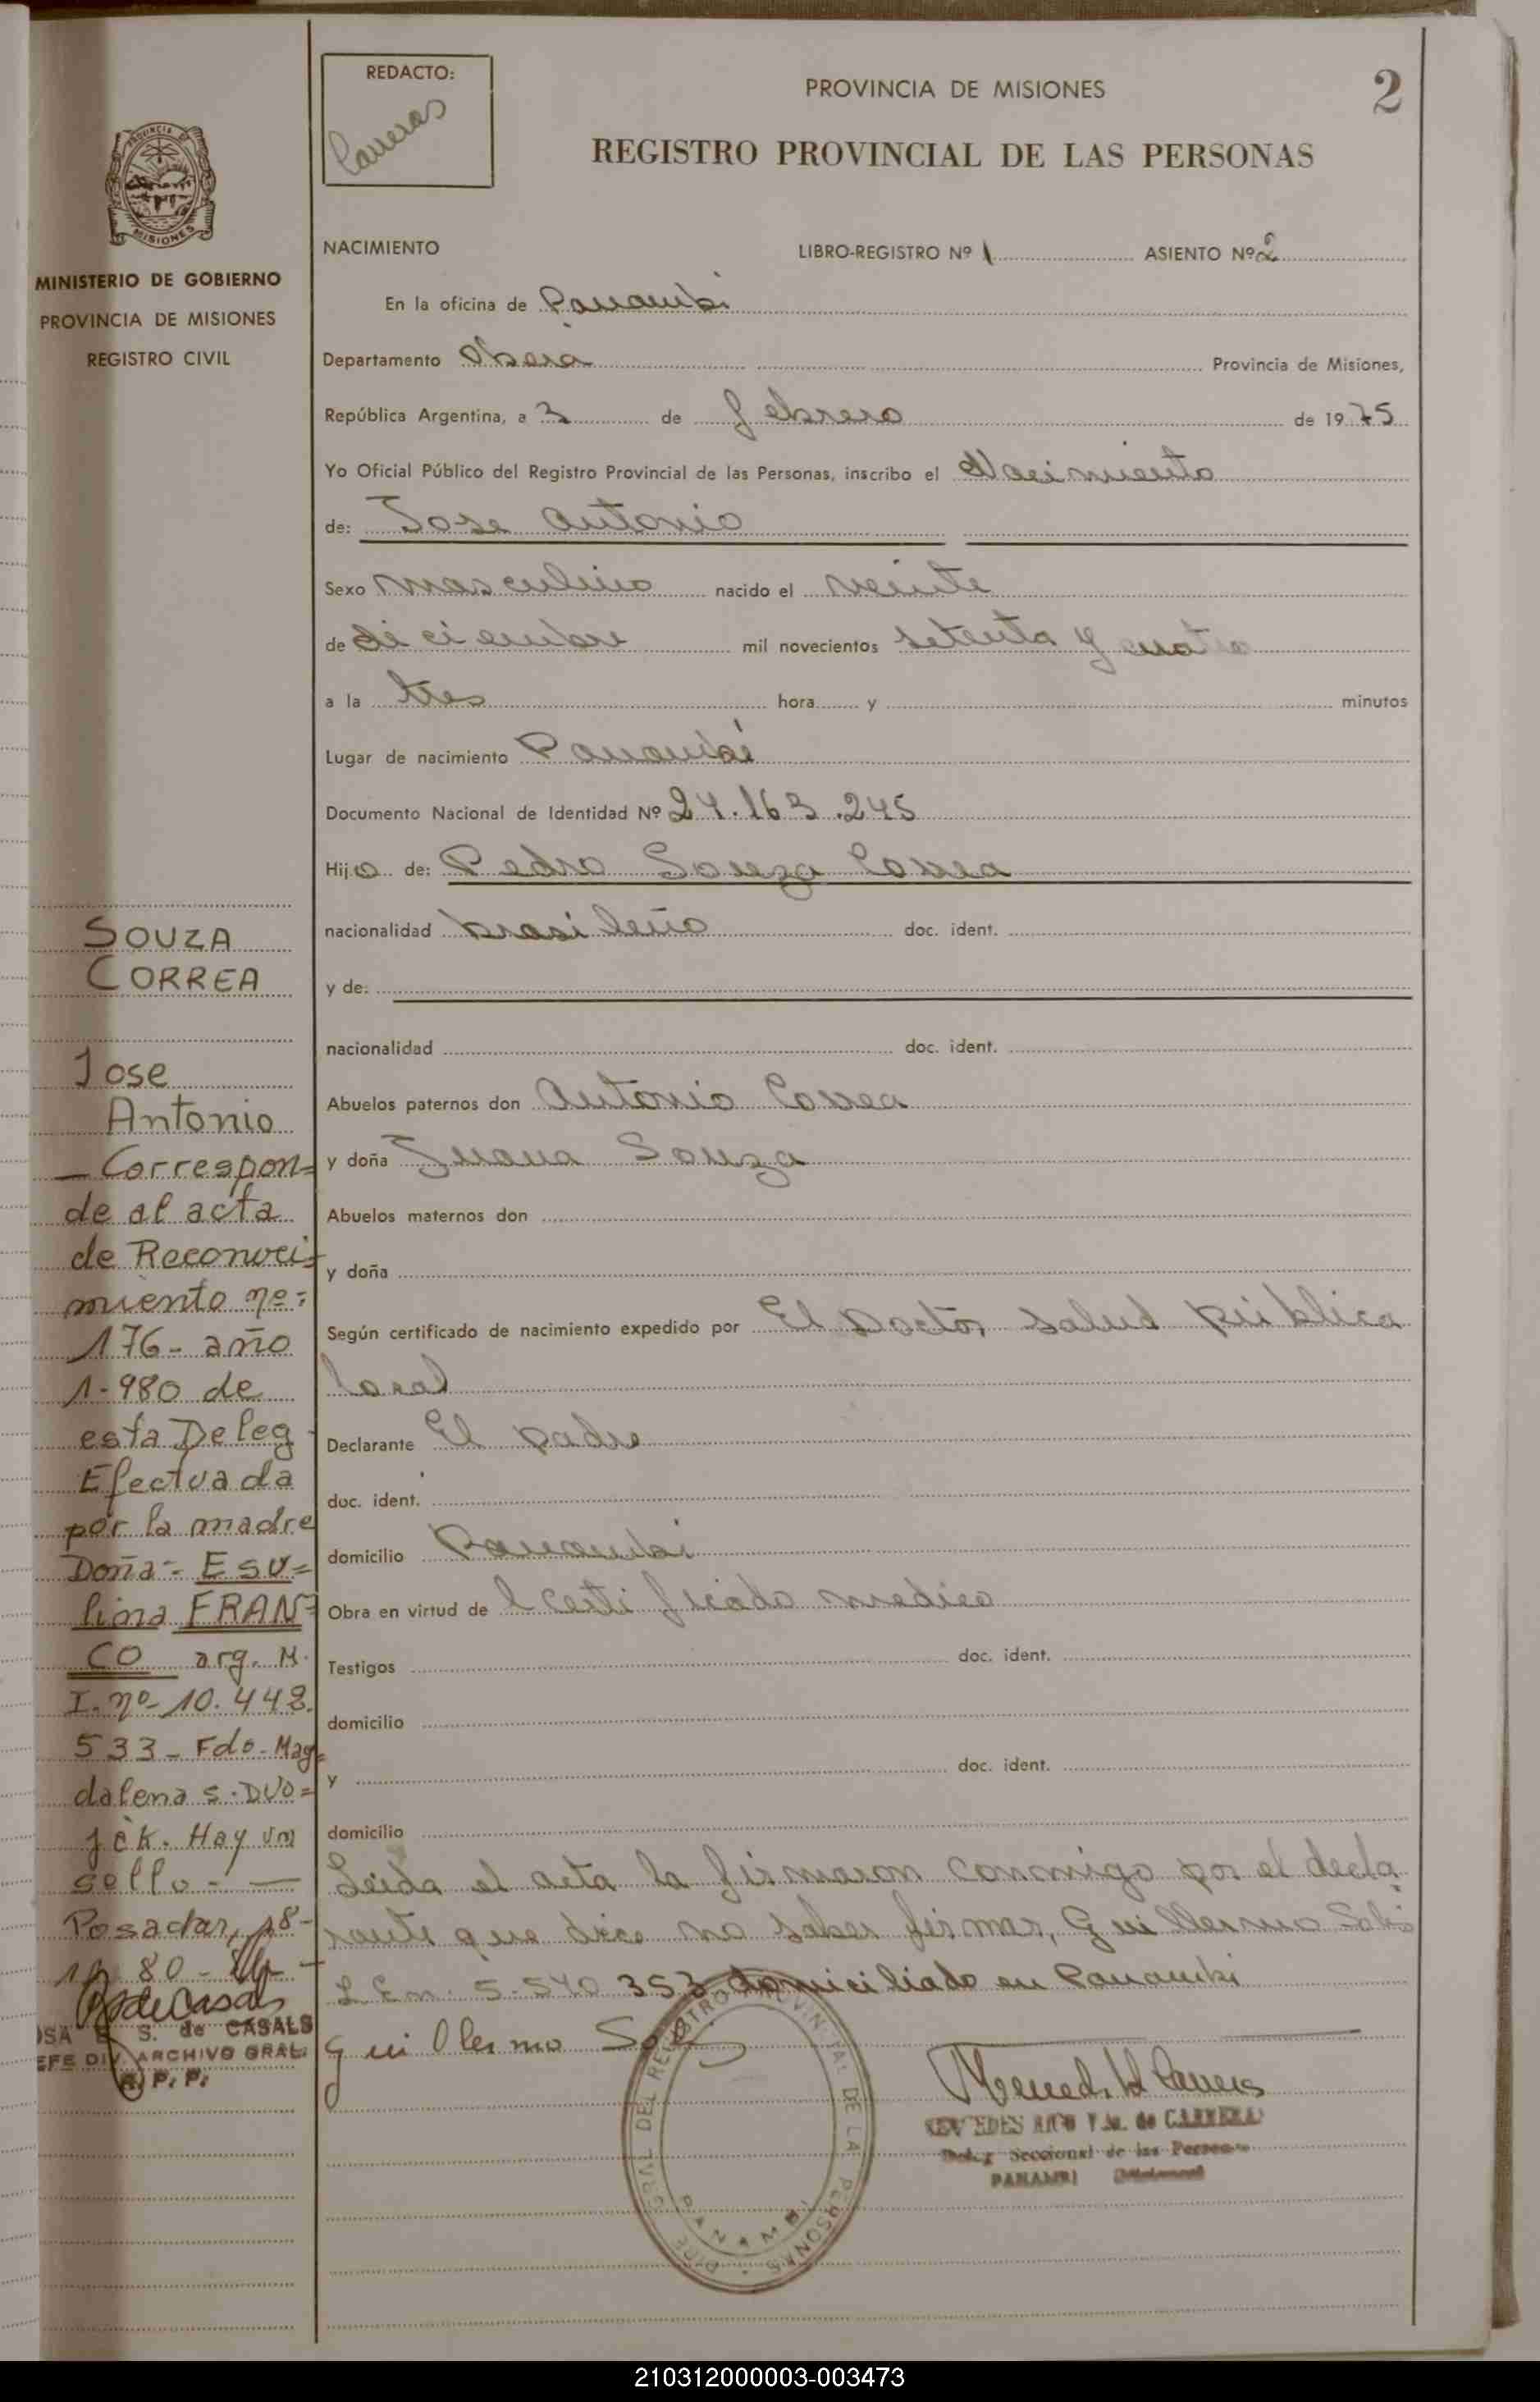 REDACTO:
Carreras
PROVINCIA DE MISIONES
2
REGISTRO PROVINCIAL DE LAS PERSONAS
PROVINCIA DE
MISIONES
MINISTERIO DE GOBIERNO
PROVINCIA DE MISIONES
REGISTRO CIVIL
NACIMIENTO LIBRO-REGISTRO Nº 1 ASIENTO Nº 2
En la oficina de Panambi
Departamento Obera Provincia de Misiones,
República Argentina, a 3 de febrero de 1975
Yo Oficial Público del Registro Provincial de las Personas, inscribo el Nacimiento
de: Jose Antonio
Sexo masculino nacido el veinte
de diciembre mil novecientos setenta y cuatro
a la tres hora y minutos
Lugar de nacimiento Panambi
Documento Nacional de Identidad Nº 24.163.245
Hijo de: Pedro Souza Correa
nacionalidad brasileño doc. ident.
y de:
nacionalidad doc. ident.
Abuelos paternos don Antonio Correa
y doña Juana Souza
Abuelos maternos don
y doña
Según certificado de nacimiento expedido por El Doctor salud pública
local
Declarante El padre
doc. ident.
domicilio Panambi
Obra en virtud de l certificado medico
Testigos doc. ident.
domicilio
y doc. ident.
domicilio
Leida el acta la firmaron conmigo por el decla
rante que dice no saber firmar, Guillermo
L.E.n. 5.540 353 domiciliado en Panambi
Guillermo
SOUZA
CORREA
Jose
Antonio
— Correspon=
de al acta
de Reconoci=
miento nº=
176- año
1-980 de
esta Deleg
Efectuada
por la madre
Doña= Esu=
lina FRAN=
CO arg. M.
I. nº- 10.448.
533- Fdo- Mag=
dalena S. DUO=
jek. Hay un
sello- —
Posadas, 18-
80-
S. de CASALS
DIV. ARCHIVO GRAL.
R. P. P.
DEL REGISTRO PROVINCIAL DE LA PERSONAS
PANAMBI
de CARRERA
Seccional de las Personas
PANAMBI (Misiones)
210312000003-003473